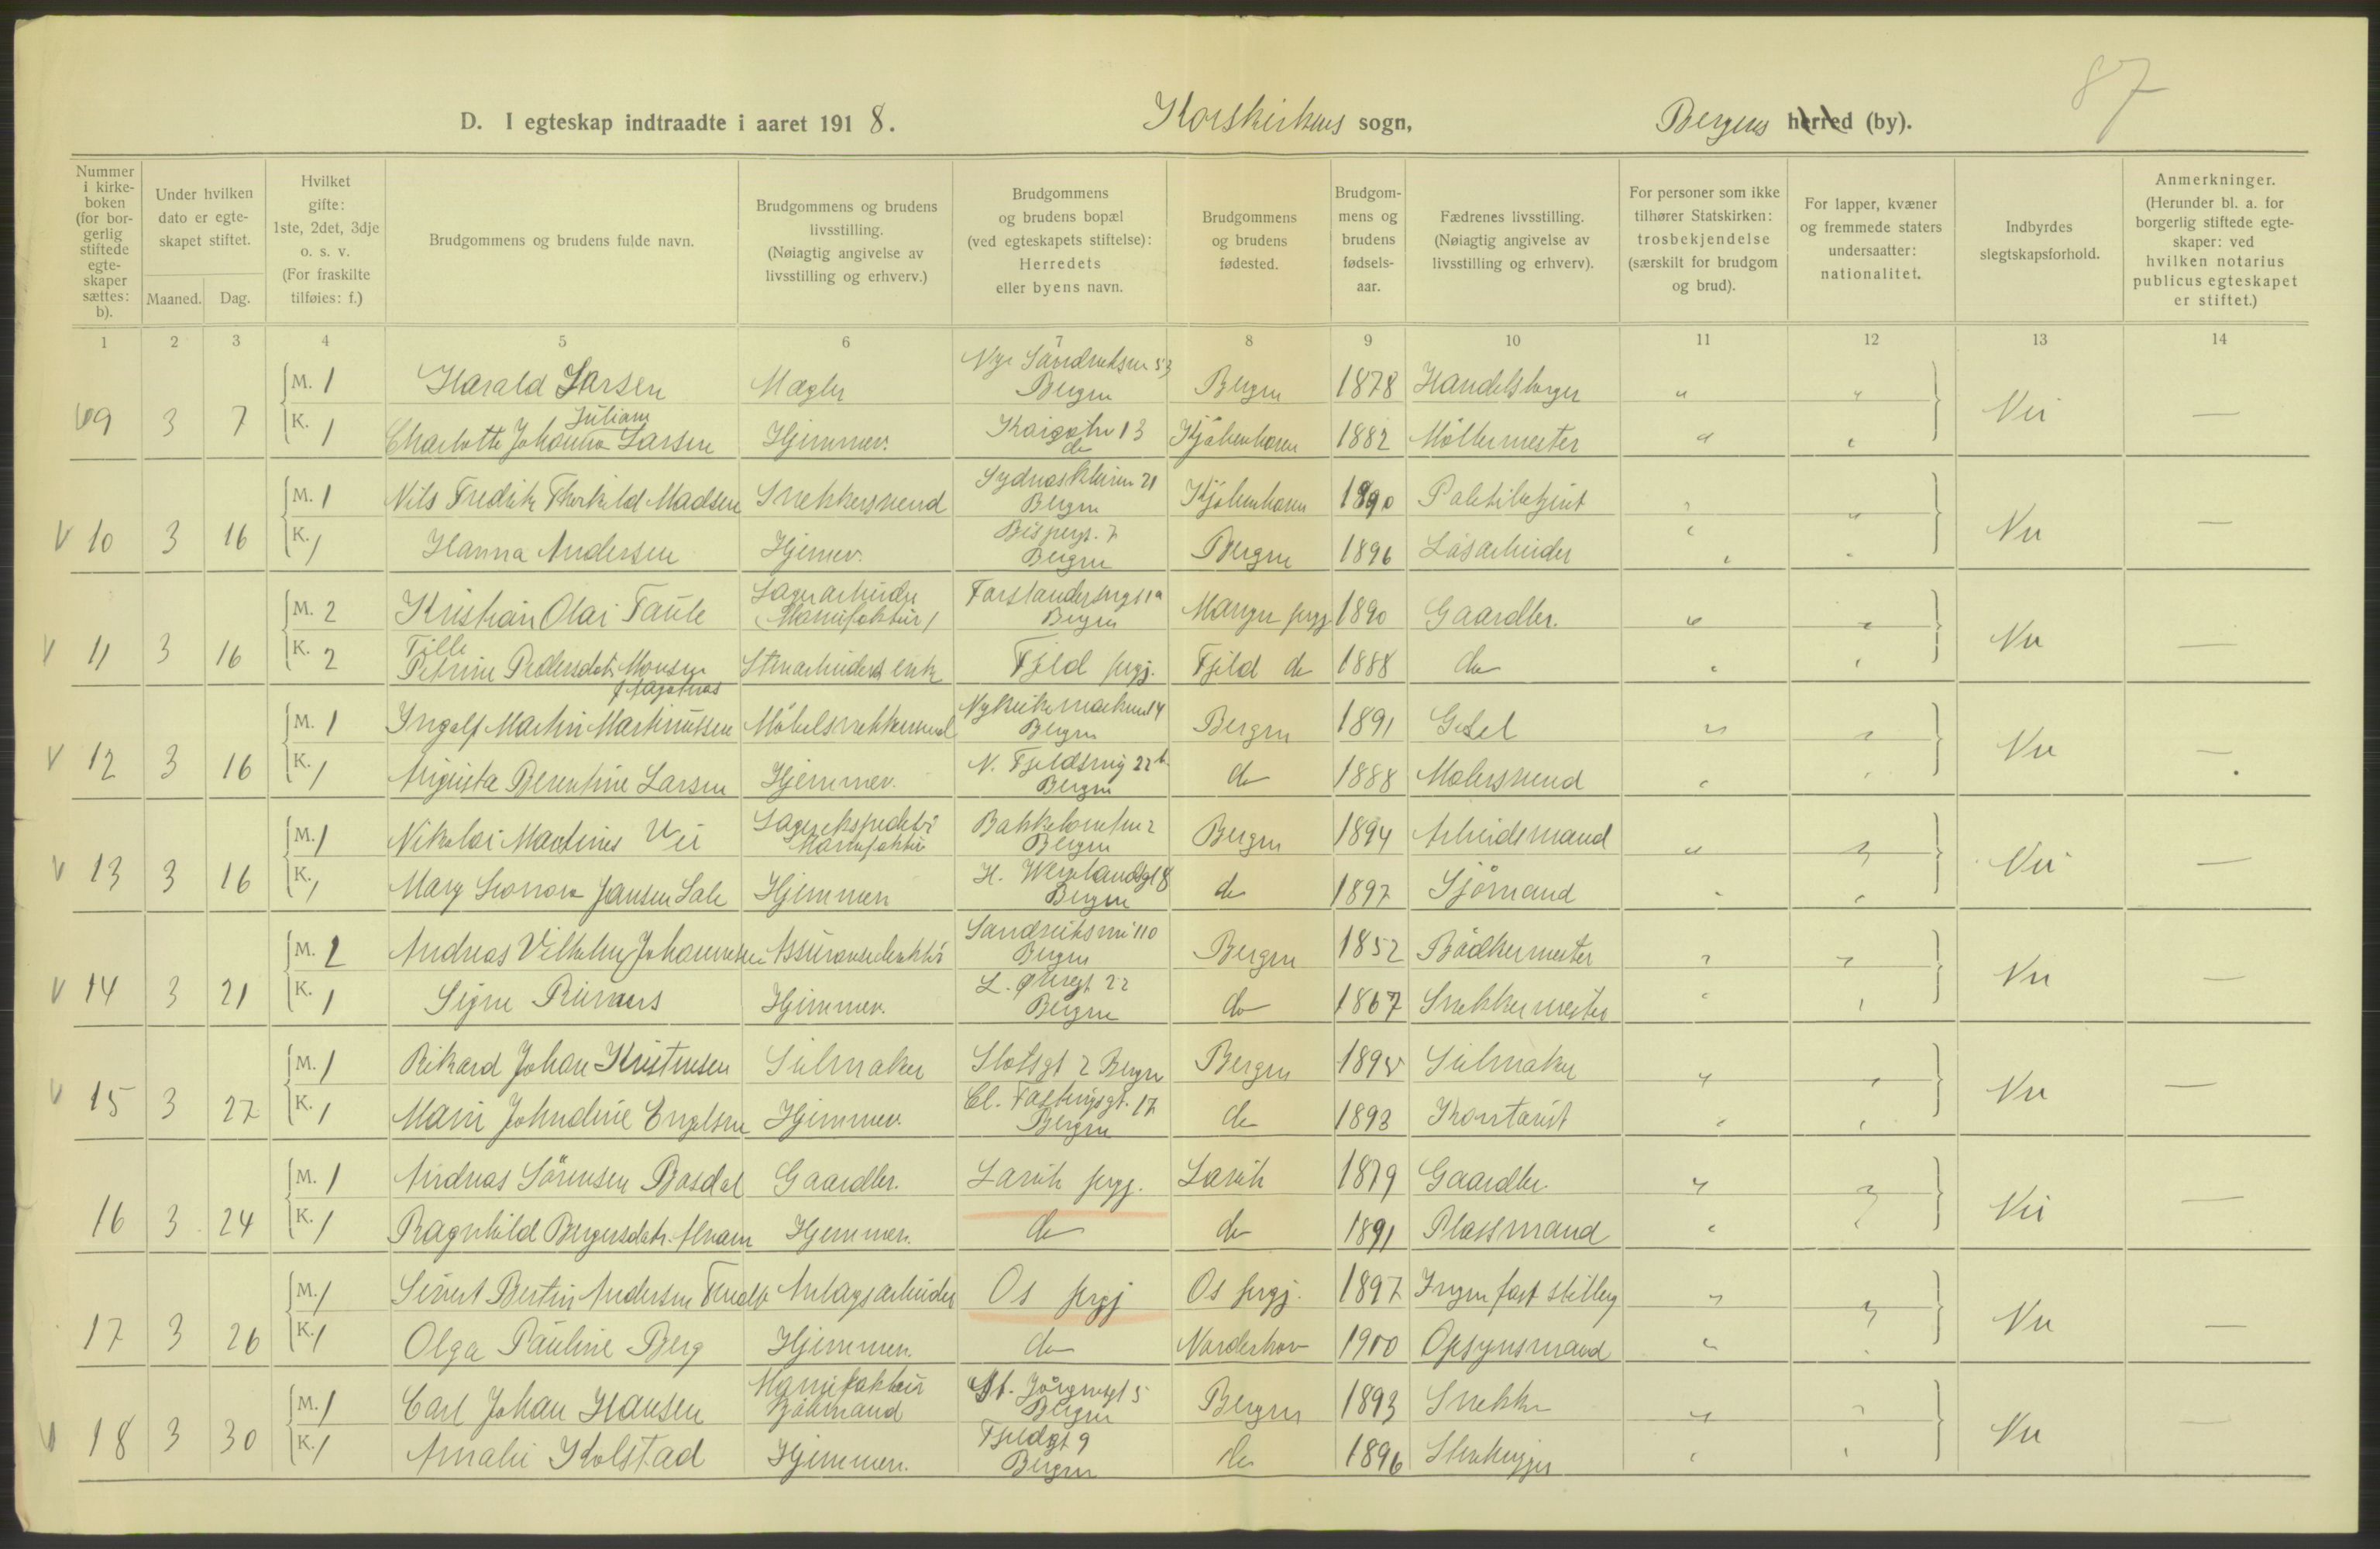 87
D. I egteskap indtraadte i aaret 1918. Korskirkens sogn, Bergens herred (by).
Nummer i kirke-boken (for bor-gerlig stiftede egte-skaper sættes: b).
Under hvilken dato er egte-skapet stiftet.
Maaned. Dag.
Hvilket gifte: 1ste, 2det, 3dje o. s. v. (For fraskilte tilføies: f.)
Brudgommens og brudens fulde navn.
Brudgommens og brudens livsstilling. (Nøiagtig angivelse av livsstilling og erhverv.)
Brudgommens og brudens bopæl (ved egteskapets stiftelse): Herredets eller byens navn.
Brudgommens og brudens fødested.
Brudgom-mens og brudens fødsels-aar.
Fædrenes livsstilling. (Nøiagtig angivelse av livsstilling og erhverv).
For personer som ikke tilhører Statskirken: trosbekjendelse (særskilt for brudgom og brud).
For lapper, kvæner og fremmede staters undersaatter: nationalitet.
Indbyrdes slegtskapsforhold.
Anmerkninger. (Herunder bl. a. for borgerlig stiftede egte-skaper: ved hvilken notarius publicus egteskapet er stiftet.)
1 2 3 4 5 6 7 8 9 10 11 12 13 14
Nye Sandviksvei 53
M. 1 Harald Larsen Mægler Bergen Bergen 1878 Handelsborger " "
9 3 7 Nei —
Juliane
K. 1 Charlotte Johanna Larsen Hjemmev. Kaigaten 13 Kjøbenhavn 1882 Møllermester " "
do
Sydneskleiven 21
M. 1 Nils Fredrik Thorkild Madsen Snekkersvend Bergen Kjøbenhavn 1890 Politibetjent " "
V 10 3 16 Nei —
Bispengt. 7
K. 1 Hanna Andersen Hjemmev. Bergen Bergen 1896 Løsarbeider " "
Lagerarbeider Forstandersmg 11a
M. 2 Kristian Olai Taule (Manufaktur) Bergen Manger prgj 1890 Gaardbr. " "
V 11 3 16 Nei —
Tille
K. 2 Petrine Pedersdatr. Monsen Stenarbeiders enke Fjeld prgj. Fjeld do 1888 do " "
f. Agotnes
Nykirkemarken 14
M. 1 Ingolf Martin Martinussen Møbelsnekkersvend Bergen Bergen 1891 Gjertsen " "
V 12 3 16 Nei —
N. Fjeldsmug 22b
K. 1 Augusta Berentine Larsen Hjemmev. Bergen do 1888 Malersvend " "
Lagerekspeditør
M. 1 Nikolai Martinus Vei Manufaktur Bergen Bergen 1894 Arbeidsmand " "
V 13 3 16 Nei —
H. Wergelandsgt 8
K. 1 Mary Leonora Jansen Sale Hjemmev. Bergen do 1897 Sjømand " "
Sandviksvei 110
M. 2 Andreas Vilhelm Johannesen Assurancedirektør Bergen Bergen 1852 Bødkermester " "
V 14 3 21 Nei —
L. Øvregt 22
K. 1 Signe Hjemmev. Bergen do 1867 Snekkermester " "
M. 1 Rikard Johan Kristensen Seilmaker Slotsgt 2 Bergen Bergen Seilmaker " "
V 15 3 27 Nei —
Cl. Fastingsgt. 17
K. 1 Marie Johndine Engelsen Hjemmev. Bergen do 1893 Kontorist " "
M. 1 Andreas Sörensen Basdal Gaardbr. Lavik prgj. Lavik 1879 Gaardbr. " "
16 3 24 Nei —
K. 1 Ragnhild Bergersdatr. Hjemmev. do do 1891 Plassmand " "
M. 1 Sivert Bertin Andersen Anlægsarbeider Os prgj Os prgj. 1897 Ingen fast stilling " "
17 3 26 Nei —
K. 1 Olga Pauline Berg Hjemmev. do Norderhov 1900 Opsynsmand " "
Manufaktur St. Jörgensgt 5
M. 1 Carl Johan Hansen Bergen Bergen 1893 Snekker " "
V 18 3 30 Nei —
Fjeldgt 9
K. 1 Amalie Kolstad Hjemmev. Bergen do 1896 Stenhugger " "